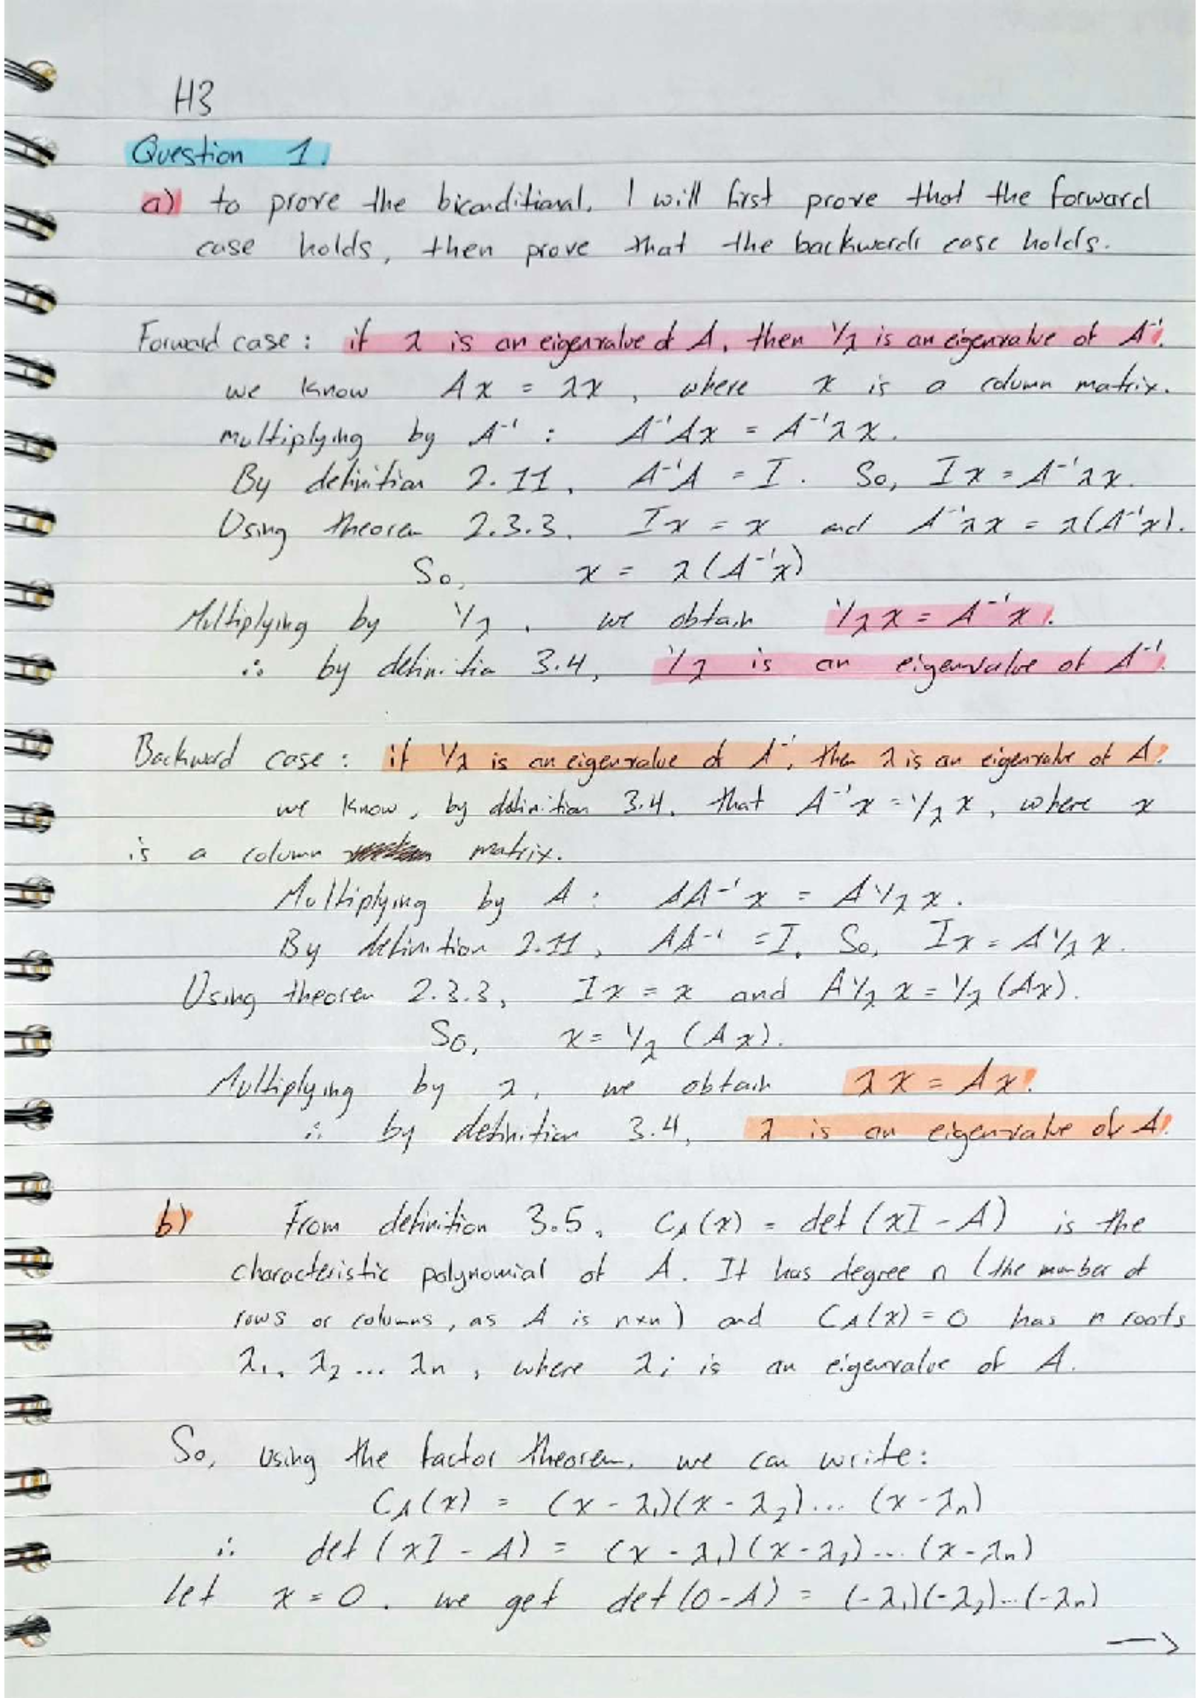 H3
Question 1.
a) to prove the biconditional, I will first prove that the forward
case holds, then prove that the backwards case holds.
Forward case: if λ is an eigenvalue of A, then 1/λ is an eigenvalue of A⁻¹.
we know Ax = λx, where x is a column matrix.
Multiplying by A⁻¹: A⁻¹Ax = A⁻¹λx.
By definition 2.11, A⁻¹A = I. So, Ix = A⁻¹λx.
Using theorem 2.3.3, Ix = x and A⁻¹λx = λ(A⁻¹x).
So, x = λ(A⁻¹x)
Multiplying by 1/λ, we obtain 1/λ x = A⁻¹x.
∴ by definitin 3.4, 1/λ is an eigenvalue of A⁻¹.
Backward case: if 1/λ is an eigenvalue of A⁻¹, then λ is an eigenvalue of A.
we know, by definition 3.4, that A⁻¹x = 1/λ x, where x
is a column matrix.
Multiplying by A: AA⁻¹x = A1/λ x.
By definition 2.11, AA⁻¹ = I. So, Ix = A1/λ x.
Using theorem 2.3.3, Ix = x and A1/λ x = 1/λ (Ax).
So, x = 1/λ (Ax).
Multiplying by λ, we obtain λx = Ax.
∴ by definition 3.4, λ is an eigenvalue of A.
b) From definition 3.5, C_A(x) = det(xI - A) is the
characteristic polynomial of A. It has degree n (the number of
rows or columns, as A is n×n) and C_A(x) = 0 has n roots
λ₁, λ₂ ... λn, where λi is an eigenvalue of A.
So, using the factor theorem, we can write:
C_A(x) = (x - λ₁)(x - λ₂)... (x - λn)
∴ det(xI - A) = (x - λ₁)(x - λ₂)... (x - λn)
let x = 0. we get det(0 - A) = (-λ₁)(-λ₂)...(-λn)
→